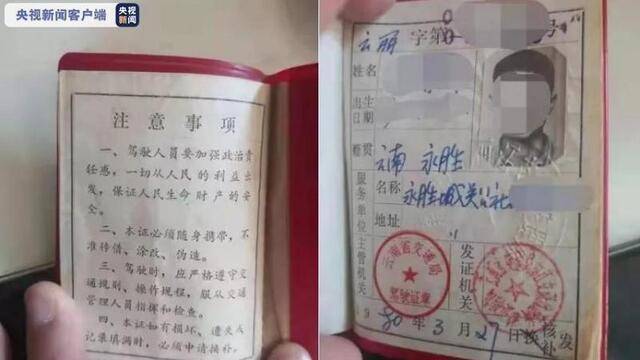 央视新闻客户端
注意事项
一、驾驶人员要加强政治责
任感，一切从人民的利益出
发，保证人民生命财产的安
全。
二、本证必须随身携带，不
准转借、涂改、伪造。
三、驾驶时，应严格遵守交
通规则、操作规程，服从交通
管理人员指挥和检查。
四、本证如有损坏、遗失或
记录填满时，必须申请换补。
云丽字第 号
姓名
出生
日期
籍贯 云南 永胜
服务单位
名称 永胜城关公社
地址
主管机关
云南省交通局
驾驶证章
发证机关
1980年3月27日 核发
换补